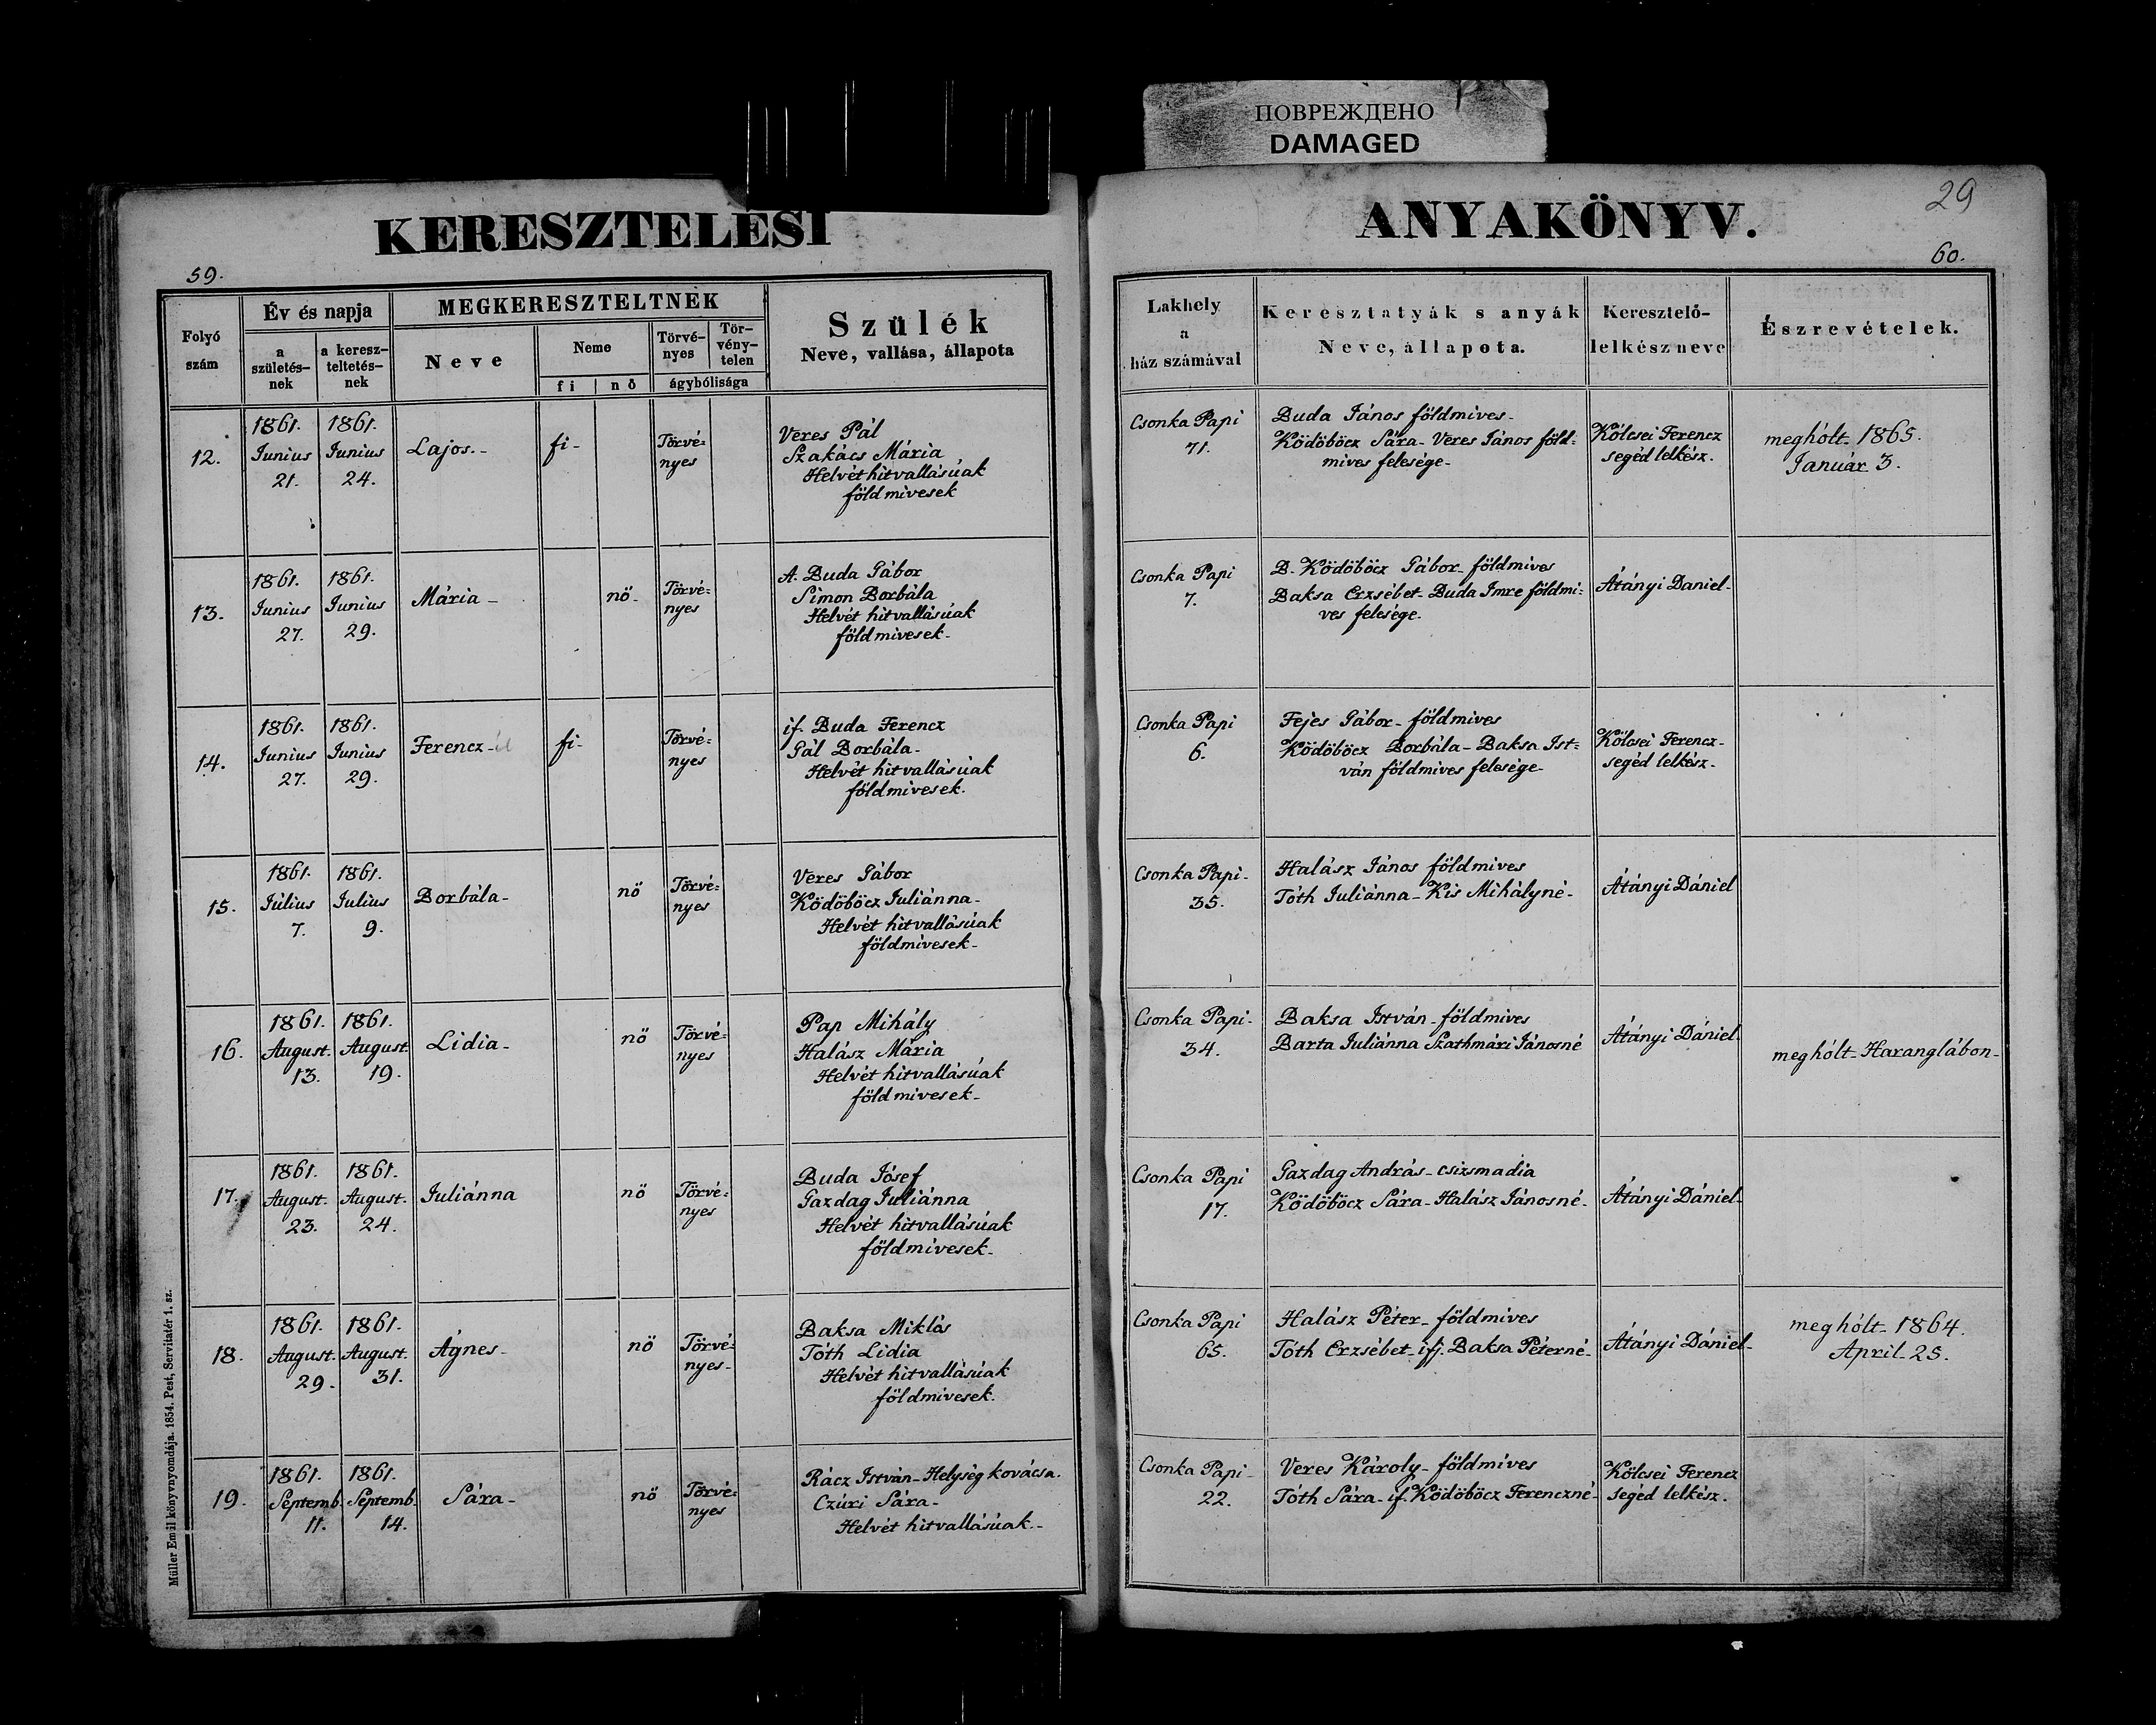 ПОВРЕЖДЕНО
DAMAGED
29
KERESZTELÉSI
ANYAKÖNYV.
59.
60.
Folyó
szám
Év és napja
a
születés-
nek
a keresz-
teltetés-
nek
MEGKERESZTELTNEK
Neve
Neme
fi | nö
Törvé-
nyes
Tör-
vény-
telen
ágybólisága
Szülék
Neve, vallása, állapota
Lakhely
a
ház számával
Keresztatyák s anyák
Neve, állapota.
Keresztelő-
lelkész neve
Észrevételek.
12.
1861.
Junius
21.
1861.
Junius
24.
Lajos.-
fi-
Törvé=
nyes
Veres Pál
Szakács Mária
Helvét hitvallásúak
földmivesek
Csonka Papi
71.
Buda János földmives-
Ködöböcz Sára- Veres János föld=
mives felesége-
Kölcsei Ferencz
segéd lelkész.
meghólt- 1865.
Január 3.
13.
1861.
Junius
27.
1861.
Junius
29.
Mária-
nö-
Törvé=
nyes
A. Buda Gábor
Simon Borbála
Helvét hitvallásúak
földmivesek-
Csonka Papi
7.
B. Ködöböcz Gábor- földmives
Baksa Erzsébet- Buda Imre földmi=
ves felesége.
Átányi Daniel-
14.
1861.
Junius
27.
1861.
Junius
29.
Ferencz-
fi-
Törvé=
nyes
if. Buda Ferencz
Gál Borbála-
Helvét hitvallásúak
földmivesek.
Csonka Papi
6.
Fejes Gábor- földmives
Ködöböcz Borbála- Baksa Ist=
ván földmives felesége-
Kölcsei Ferencz-
segéd lelkész-
15.
1861.
Július
7.
1861.
Julius
9.
Borbála-
nö
Törvé=
nyes
Veres Gábor
Ködöböcz Juliánna-
Helvét hitvallásúak
földmivesek-
Csonka Papi-
35.
Halász János földmives
Tóth Juliánna- Kis Mihályné-
Átányi Dániel
16.
1861.
August.
13.
1861.
August
19.
Lidia-
nö
Törvé=
nyes
Pap Mihály
Halász Mária
Helvét hitvallásúak
földmivesek-
Csonka Papi-
34.
Baksa István- földmives
Barta Juliánna Szathmári Jánosné
Átányi Dániel-
meghólt- Haranglábon-
17.
1861.
August.
23.
1861.
August.
24.
Juliánna
nö
Törvé=
nyes
Buda Jósef
Gazdag Juliánna
Helvét hitvallásúak
földmivesek-
Csonka Papi
17.
Gazdag András- csizsmadia
Ködöböcz Sára- Halász Jánosné-
Átányi Dániel-
18.
1861.
August.
29.
1861.
August.
31.
Ágnes-
nö
Törvé=
nyes-
Baksa Miklós
Tóth Lidia
Helvét hitvallásúak
földmivesek.
Csonka Papi
65.
Halász Péter- földmives
Tóth Erzsébet- ifj. Baksa Péterné-
Átányi Dániel-
meghólt- 1864.
April- 25.
19.
1861.
Septemb.
11.
1861.
Septemb.
14.
Sára-
nö
Törvé=
nyes
Rácz István- Helység kovácsa.
Czúri Sára-
Helvét hitvallásúak.-
Csonka Papi-
22.
Veres Károly- földmives
Tóth Sára- if. Ködöböcz Ferenczné-
Kölcsei Ferencz
segéd lelkész.
Müller Emil könyvnyomdája. 1854. Pest, Servitatér 1. sz.